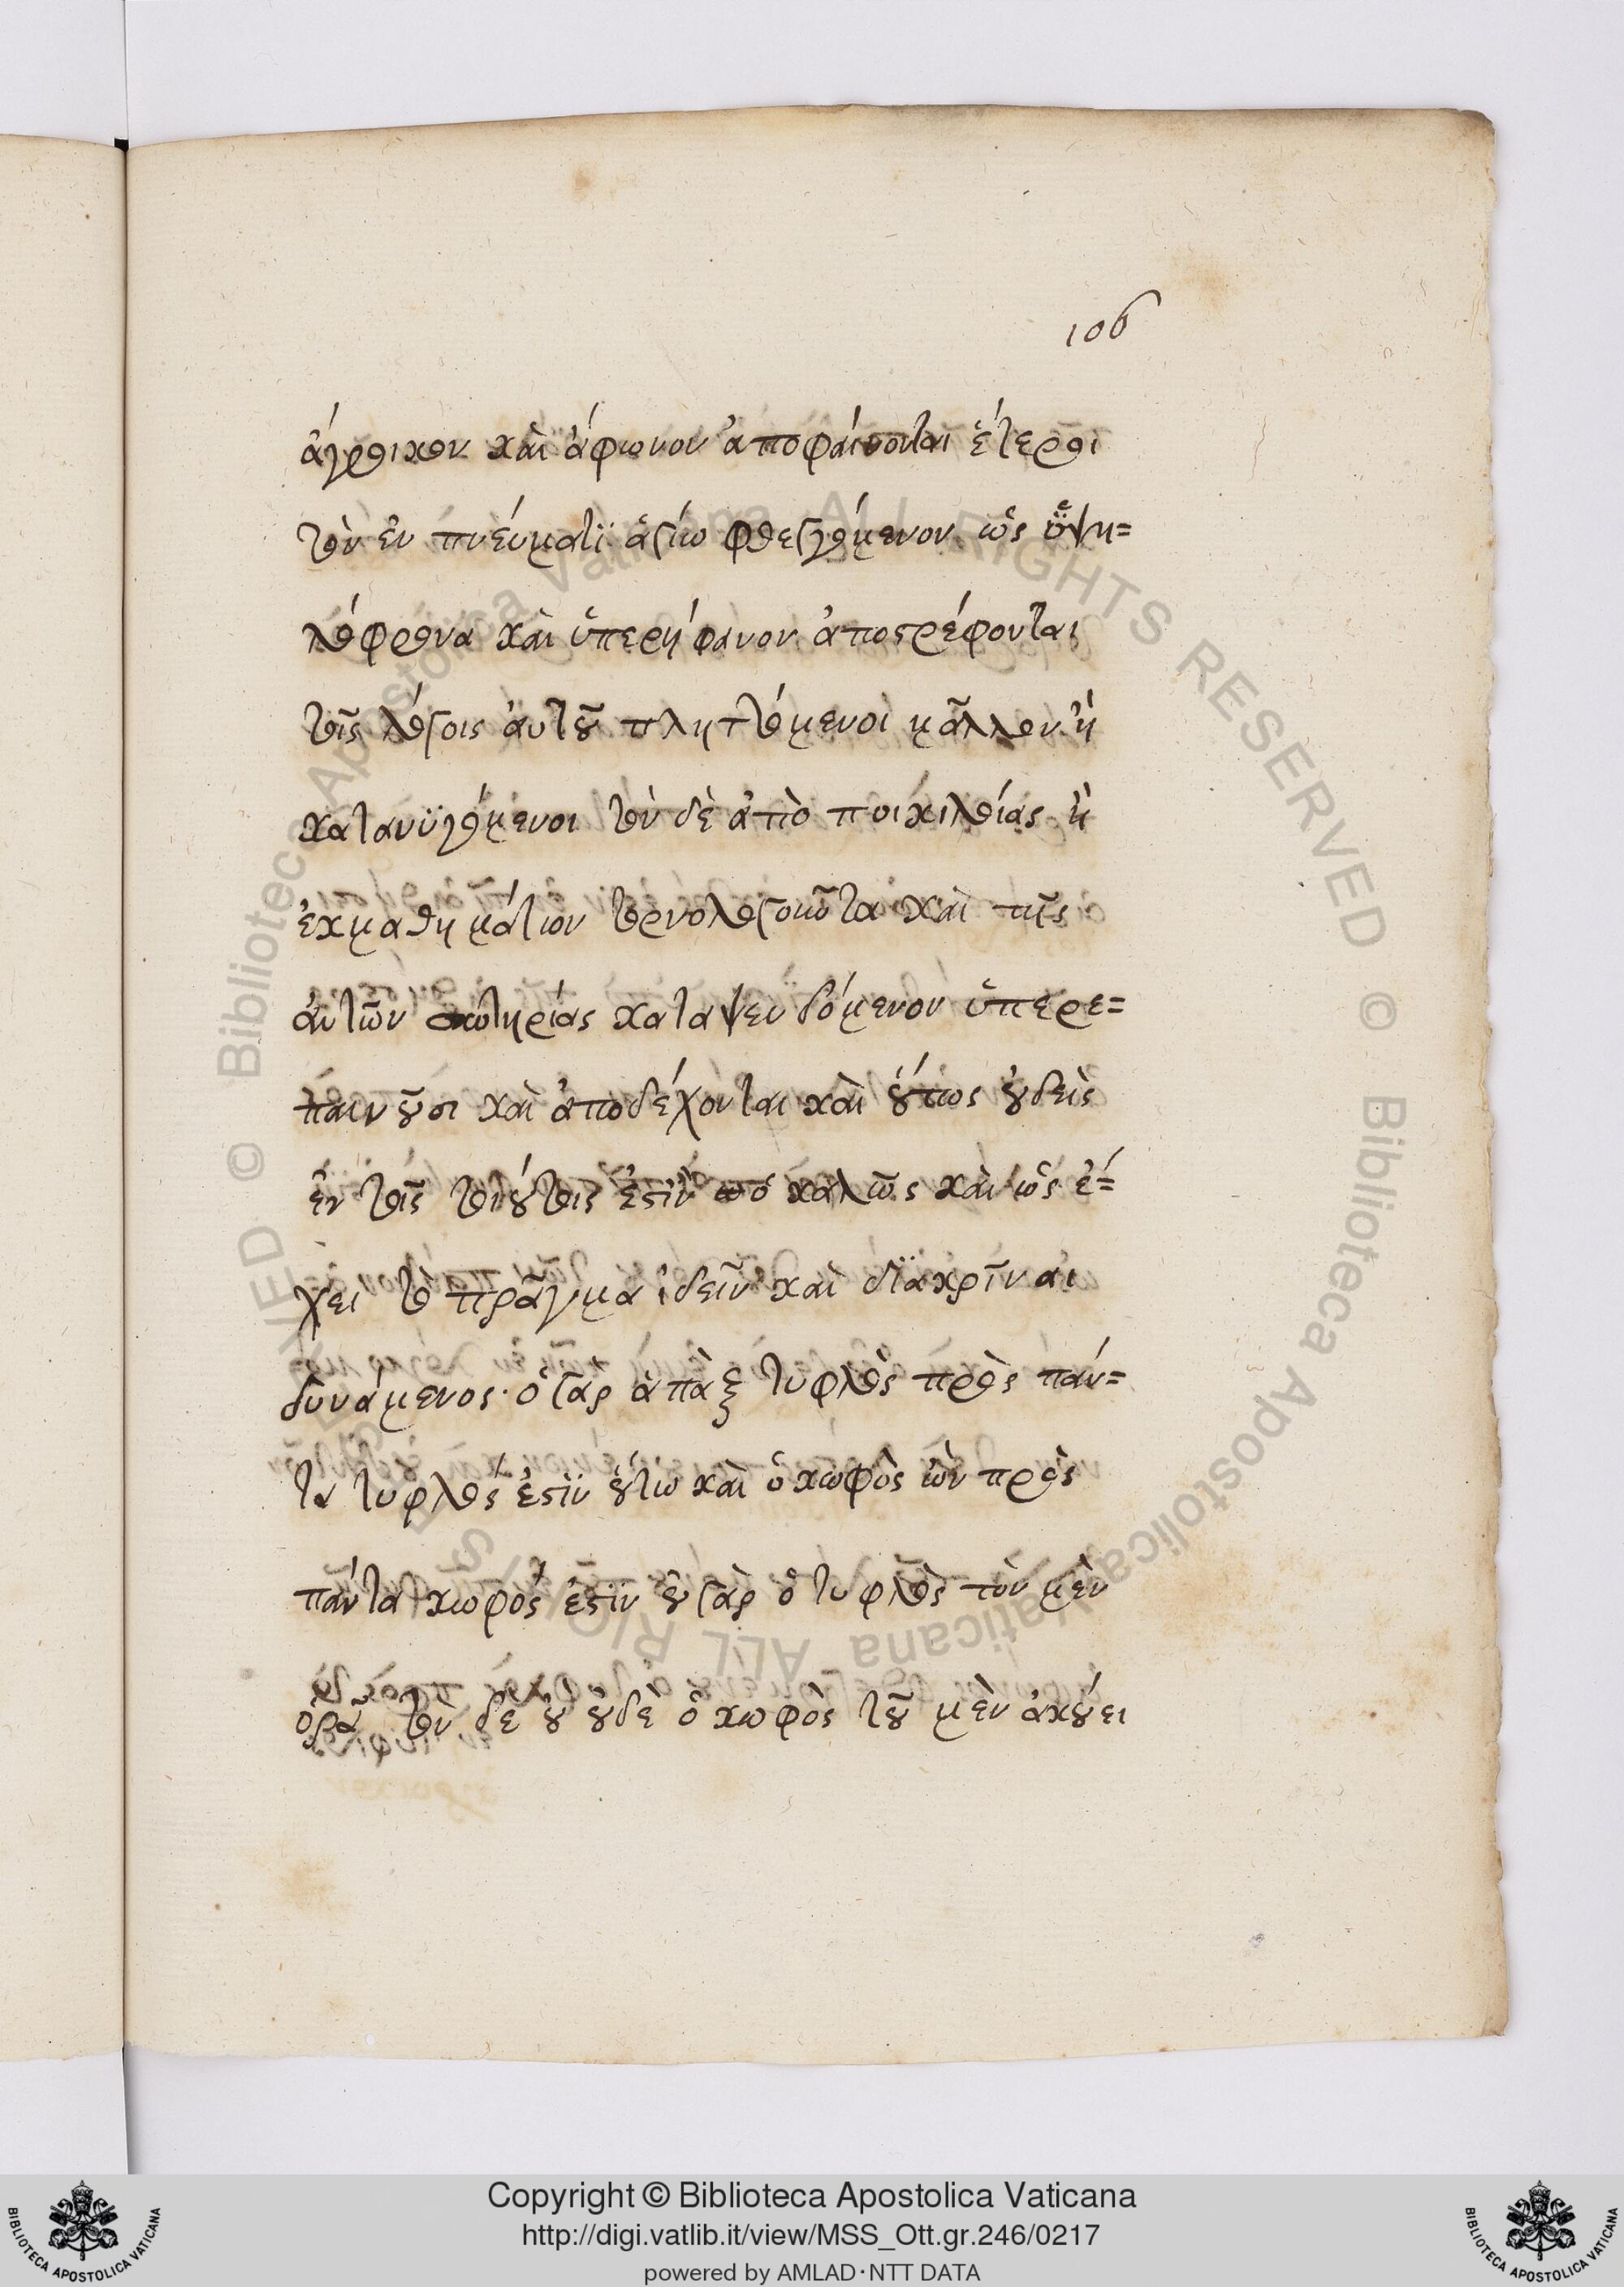 106
ἄγροικον καὶ ἄφωνον ἀποφαίνονται ἕτεροι
τὸν ἐν πνεύματϊ ἁγίω φθεγγόμενον ὡς ὑψη=
λόφρονα καὶ ὑπερήφανον ἀποστρέφονται
τοῖς λόγοις ἀυτοῦ πληττόμενοι μᾶλλον ἢ
κατανϋγόμενοι τὸν δὲ ἀπὸ ποικιλοίας ἢ
ἐκμαθημάτων τορνολογοῦντα καὶ τῆς
ἀυτῶν σωτηρίας καταψευδόμενον ὑπερε=
παινοῦσι καὶ ἀποδέχονται καὶ οὕπως οὐδεὶς
ἐν τοῖς τοιούτοις ἐστὶν ὁ καλῶς καὶ ὡς ἐ=
χει τὸ πρᾶγμα ἰδεῖν καὶ δϊακρῖναι
δυνάμενος· ὁ γὰρ ἁπὰξ τυφλὸς πρὸς πάν=
τα τυφλός ἐστϊν οὕτω καὶ ὁ κωφὸς ὢν πρὸς
πάντα κωφός ἐστϊν οὐ γὰρ ὁ τυφλὸς τὸν μὲν
ὁρᾶ τὸν δὲ οὐ οὐδὲ ὁ κωφὸς τοῦ μὲν ἀκούει
Copyright © Biblioteca Apostolica Vaticana
http://digi.vatlib.it/view/MSS_Ott.gr.246/0217
powered by AMLAD·NTT DATA
BIBLIOTECA APOSTOLICA VATICANA
BIBLIOTECA APOSTOLICA VATICANA
© Biblioteca Apostolica Vaticana ALL RIGHTS RESERVED
© Biblioteca Apostolica Vaticana ALL RIGHTS RESERVED